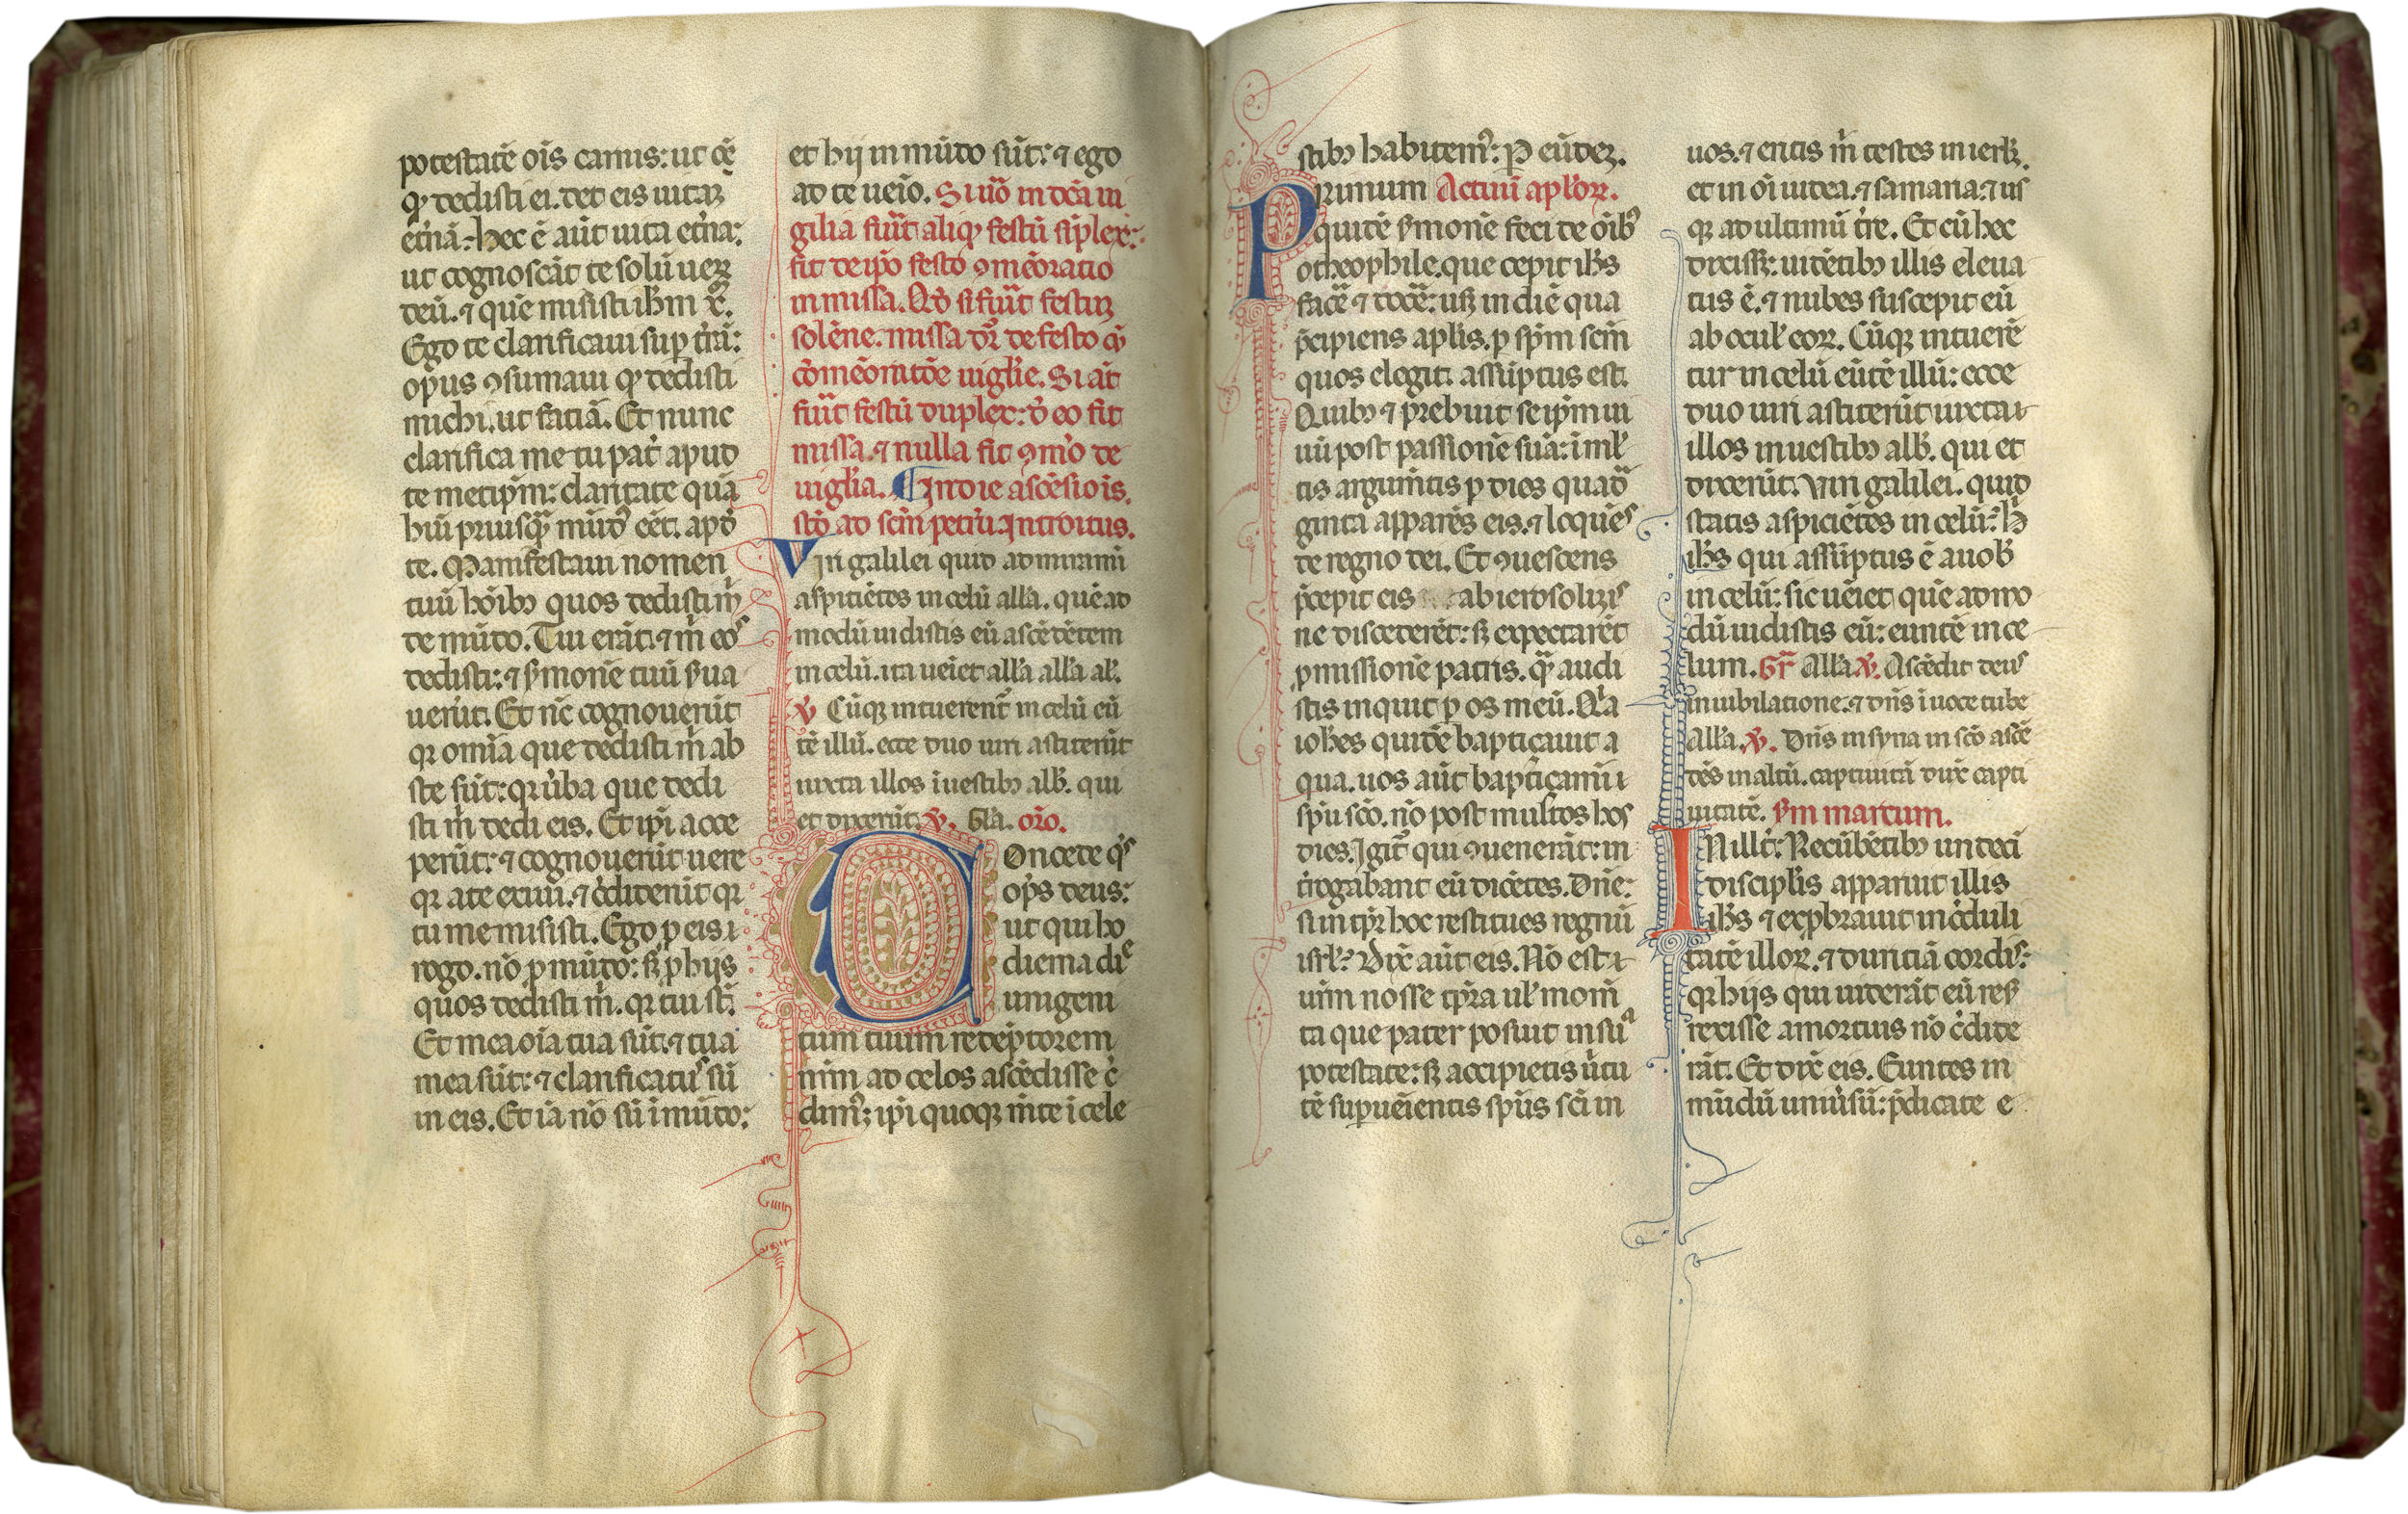 potestatē oīs carnis: ut oē
qđ dedisti ei. det eis uitaʒ
et̓nā. hec ē aūt uita et̓na:
ut cognoscāt te solū ueꝝ
deū. ⁊ quē misisti ih̄m x̄.
Ego te clarificaui suꝑ tr̄ā:
opus ꝯsumaui qđ dedisti
michi. ut fatiā. Et nunc
clarifica me tu pat̓ apud
te metip̄m: claritate quā
hui priusꝗ̄ mūdꝰ eēt. apđ
te. Manifestaui nomen
tuū hōibꝫ quos dedisti m̄
de mūdo. Tui erāt. ⁊ m̄ eos
dedisti: ⁊ s̓monē tuū s̓ua
uerūt. Et nc̄ cognouerūt
qꝛ omīa que dedisti m̄ ab
ste sūt: qꝛ ūba que dedi
sti m̄ dedi eis. Et ip̄i acce
perūt: ⁊ cognouerūt uere
qꝛ a te exiui. ⁊ c̓diderūt qꝛ
tu me misisti. Ego ꝓ eis i
rogo. nō ꝓ mūdo: sꝫ ꝓ hijs
quos dedisti m̄. qꝛ tui st̄.
Et mea oīa tua sūt. ⁊ tua
mea sūt: ⁊ clarificatꝰ sū
in eis. Et iā nō sū i mūdo:
et hij in mūdo sūt: ⁊ ego
ad te ueīo. Si uō in dc̄a ui
gilia fuīt aliqđ festū siplex:
fit de ip̄o festo ꝯmēoratio
in missa. Qđ si fuīt festuʒ
solēne. missa dr̄ de festo cū
cōmēoratiōe uigl̓ie. Si aūt
fuīt festū duplex: đ eo fit
missa. ⁊ nulla fit ꝯmō de
uigl̓ia. In die ascēsiois.
stō ad sc̄m petrū. Introitus.
Viri galilei quid admiramī
aspitiētes in celū all̓a. quē ad
modū uidistis eū ascēdētem
in celū. ita ueīet all̓a all̓a al̓.
℣ Cūqꝫ intuerent̄ in celū eū
tē illū. ecce duo uiri astiterūt
iuxta illos i uestibꝫ alb̓. qui
et dixerūt. ℣. Gl̓a. orō.
Oncede qs̄
op̄s deus:
ut qui ho
dierna die
unigeni
tum tuum redēptorem
nr̄m ad celos ascēdisse c̓
dimꝰ: ip̄i quoqꝫ mēte i cele
stibꝫ habitemꝰ: P eūdeʒ.
Primum Actuū apl̓oꝝ.
quidē s̓monē feci de oībꝰ
o theophile. que cepit ih̄s
facē ⁊ docē: usqꝫ in diē qua
p̄cipiens apl̓is. ꝑ sp̄m sc̄m
quos elegit. assūptus est.
Quibꝫ ⁊ prebuit seip̄m ui
uū post passionē suā: i ml̓
tis argum̄tis ꝑ dies quad̄
ginta apparēs eis. ⁊ loquēs
de regno dei. Et ꝯuescens
p̄cepit eis ab ierosolimis
ne discederēt: sꝫ expectarēt
ꝓmissionē patris. ꝗ̄ audi
stis inquit ꝑ os meū. Qa
ioh̄es quidē baptiçauit a
qua. uos aūt baptiçamī i
sp̄u sc̄o. nō post multos hos
dies. Igit̄ qui ꝯuenerāt: in
t̓rogabant eū dicētes. Dn̄e:
si in tp̄r hoc restitues regnū
isrl̓? Dix̄ aūt eis. Nō est i
ur̄m nosse tp̄ra ul̓ mom̄
ta que pater posuit in suā
potestate: sꝫ accipietis ūtu
tē suꝑueīentis sp̄us sc̄i in
uos. ⁊ eritis m̄ testes in ierl̓ꝫ.
et in oī iudea. ⁊ samaria: ⁊ us
qꝫ ad ultimū tr̄e. Et cū hec
dixissꝫ: uidētibꝫ illis eleua
tus ē. ⁊ nubes suscepit eū
ab ocul̓ eoꝝ. Cūqꝫ intuerē
tur in celū eūtē illū: ecce
duo uiri astiterūt iuxta
illos in uestibꝫ alb̓. qui et
dixerūt. Viri galilei. quid
statis aspiciētes in celū? h̓
ih̄s qui assūptus ē a uob̓
in celū: sic ueīet quē admo
dū uidistis eū: euntē in ce
lum. Gr̄ All̓a. ℣. Ascēdit deus
in iubilatione: ⁊ dn̄s i uoce tube
All̓a. ℣. Dn̄s in syna in sc̄o ascē
dēs in altū. captiuitā dux̄ capti
uitatē. Sm̄ marcum.
IN ill̓ t̓: Recūbētibꝫ undeci
discipl̓is apparuit illis
ih̄s ⁊ exꝓbrauit inc̓duli
tatē illoꝝ. ⁊ duritiā cordis:
qꝛ hijs qui uiderāt eū res̓
rexisse a mortuis nō c̓dide
rāt. Et dix̄ eis. Euntes in
mūdū uniūsū: p̄dicate e